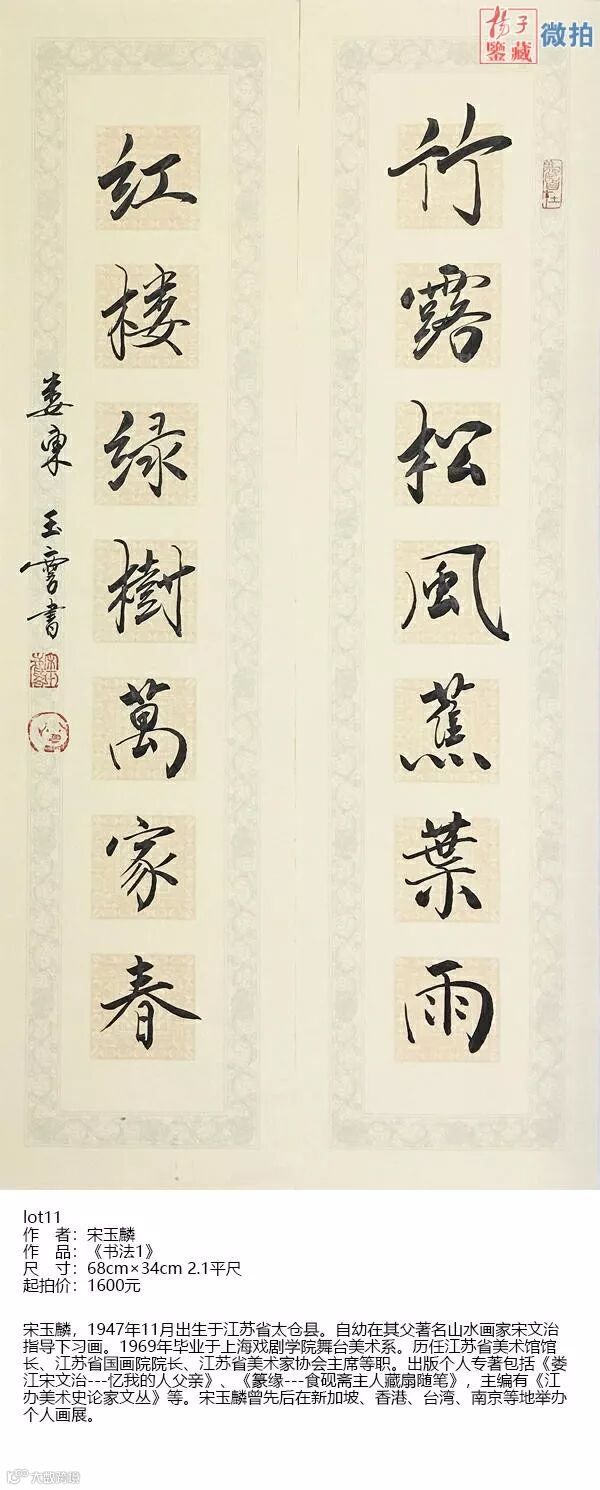 楊子
鑒藏
微拍
竹露松風蕉葉雨
红楼绿樹萬家春
娄東
玉書
lot11
作 者：宋玉麟
作 品：《书法1》
尺 寸：68cm×34cm 2.1平尺
起拍价：1600元
宋玉麟，1947年11月出生于江苏省太仓县。自幼在其父著名山水画家宋文治
指导下习画。1969年毕业于上海戏剧学院舞台美术系。历任江苏省美术馆馆
长、江苏省国画院院长、江苏省美术家协会主席等职。出版个人专著包括《娄
江宋文治---忆我的人父亲》、《篆缘---食砚斋主人藏扇随笔》，主编有《江
办美术史论家文丛》等。宋玉麟曾先后在新加坡、香港、台湾、南京等地举办
个人画展。
大数跨境